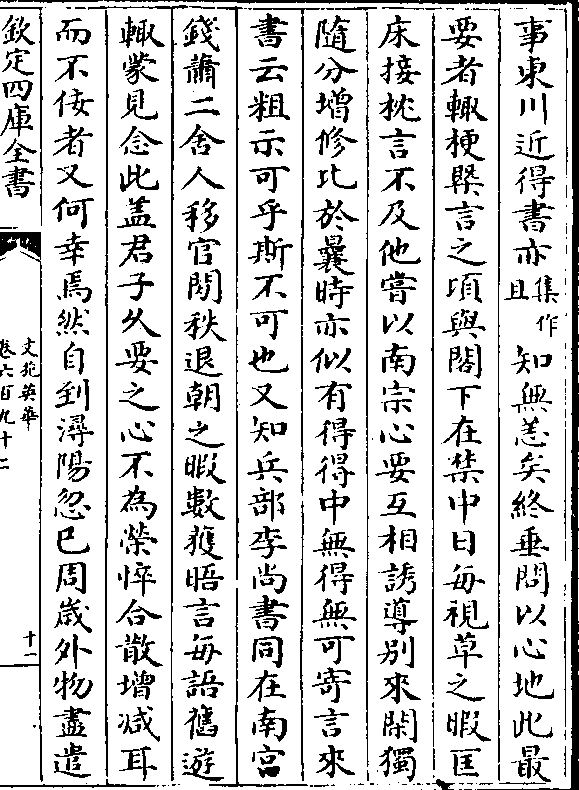 事東川近得書亦集作且知無恙矣終垂問以心地此最
要者輙梗槩言之項與閣下在禁中日每視草之暇匡
床接枕言不及他嘗以南宗心要互相誘導别來閑獨
隨分增修比於曩時亦似有得得中無得無可寄言來
書云粗示可乎斯不可也又知兵部李尚書同在南宮
錢蕭二舍人移官閒秩退朝之暇數獲晤言每語舊遊
輙蒙見念此盖君子久要之心不為榮悴合散增减耳
而不佞者又何幸焉然自到潯陽忽已周歲外物盡遣
欽定四庫全書
文苑英華
卷六百九十二
十一